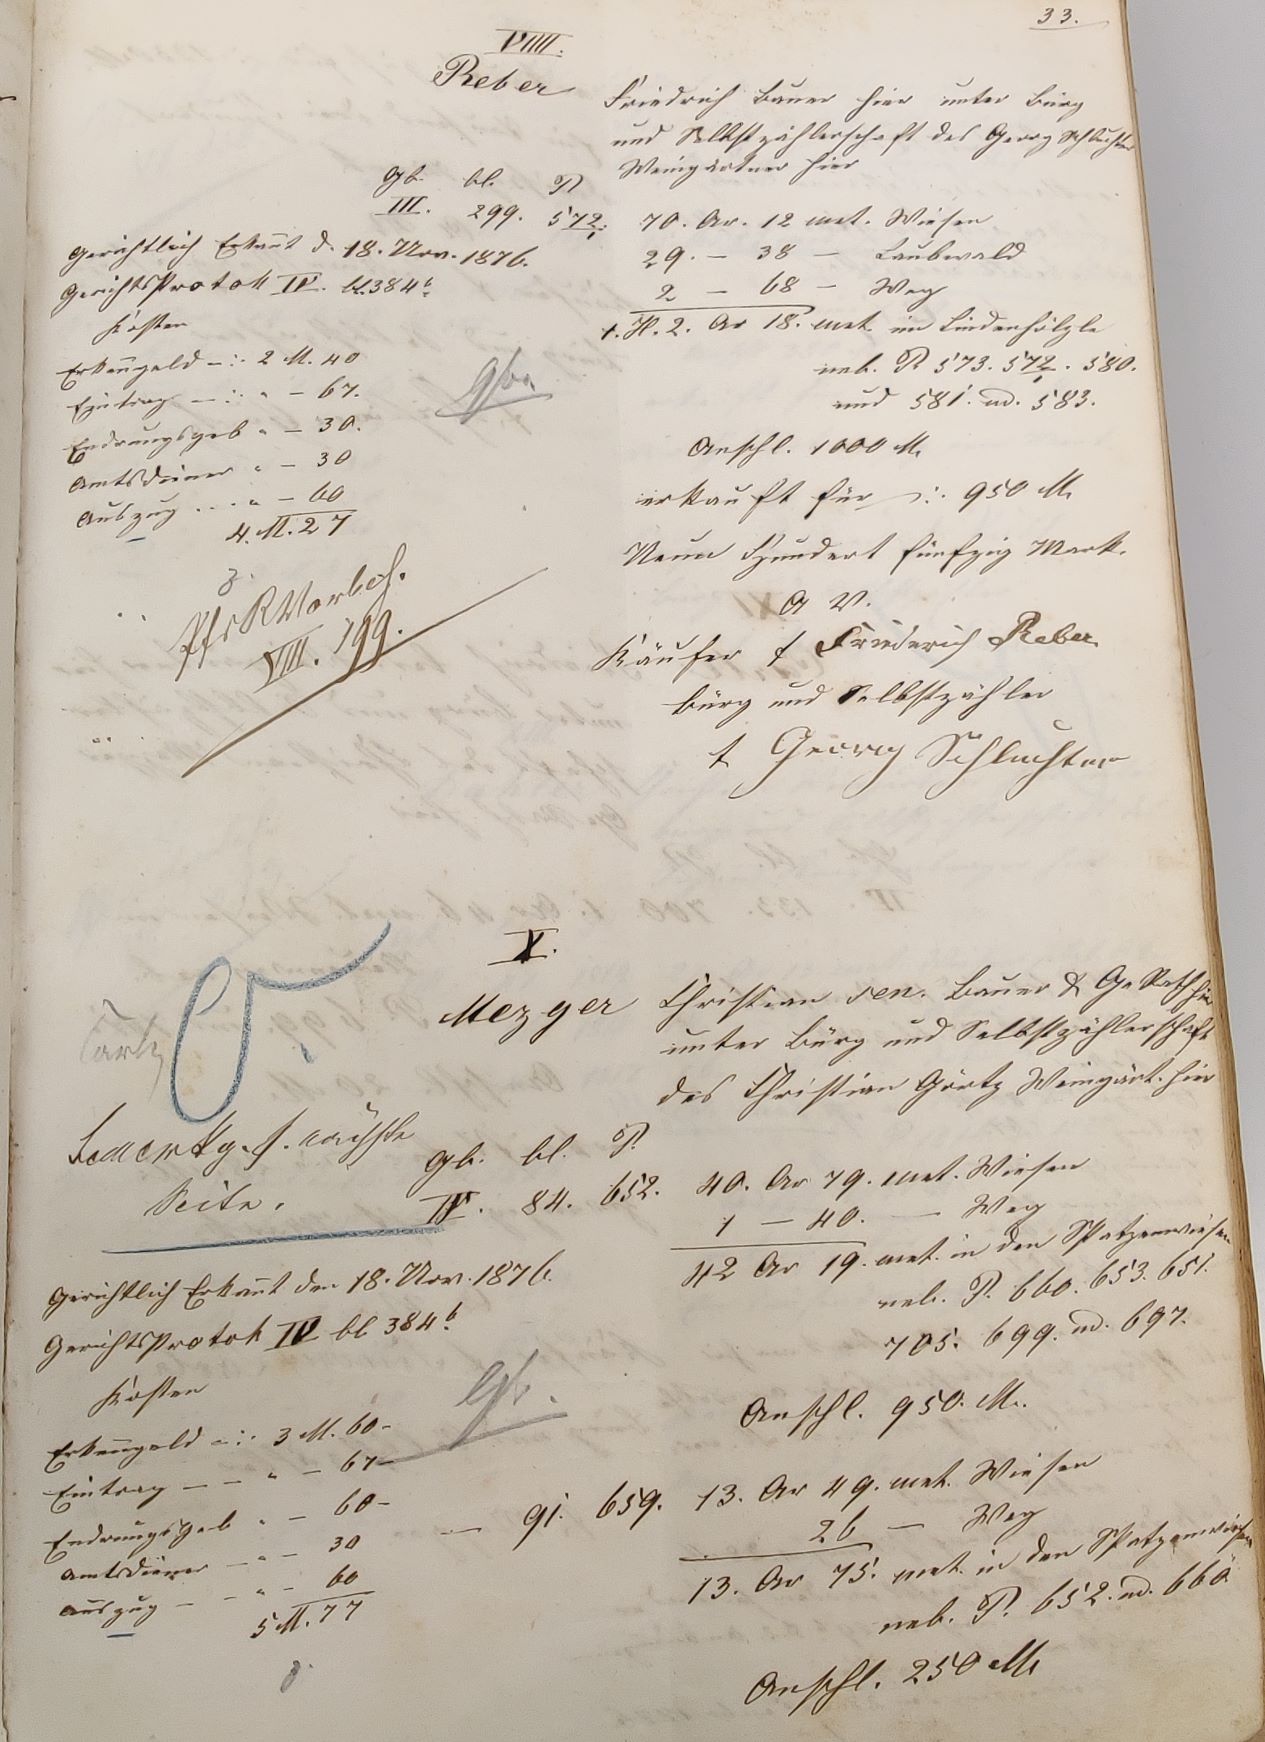 33.
VIIII.
Reber
Friedrich Bauer hier unter Bürg
und Selbstzahlerschaft des Georg Schluchter
Weingärtner hier
Gb. bl. P
III. 299. 572.
70. Ar. 12 met. Wiesen
29. — 38 — Laubwald
2 — 68 — Weg
1. H. 2. Ar 18. met. im Lindenhölzle
neb. P 573. 572. 580.
und 581. nd. 583.
Anschl. 1000 M.
erkauft für -:. 950 M.
Neun Hundert fünfzig Mark.
A V.
Käufer t Friederich Reber
Bürg und Selbstzahler
t Georg Schluchter
Gerichtlich Erkant d. 18. Nov. 1876.
GerichtsProtok IV. bl. 384 b
Kosten
Erkengeld -:. 2 M. 40
Eintrag — :. " — 67.
Endrungsgeb " — 30.
Amtsdiener " — 30
Auszug ... " — 60
4. M. 27
Gb.
VIII. 199.
X.
Mezger
Christian sen. Bauer & GeRath hier
unter Bürg und Selbstzahlerschaft
des Christian Görtz Weingärt. hier
Bemerkg. s. nächste
Seite.
Gb. bl. P.
IV. 84. 652.
40. Ar 79. met. Wiesen
1 — 40. — Weg
42 Ar 19. met. in den Spatzenwiesen
neb. P. 660. 653. 651.
705. 699. nd. 697.
Anschl. 950. M.
Gerichtlich Erkant den 18. Nov. 1876.
GerichtsProtok IV bl 384 b
Kosten
Erkengeld -:. 3 M. 60 -
Eintrag — — " — 67 -
Endrungsgeb " — 60 -
Amtsdiener — " — 30
Auszug — — " — 60
5 M. 77
Gb.
— 91. 659.
13. Ar 49. met. Wiesen
26 — Weg
13. Ar 75. met. in den Spatzenwiesen
neb. P. 652. nd. 660
Anschl. 250 M.